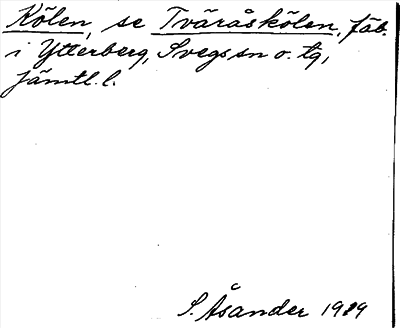 Kölen, se Tväråskölen, fäb.
i Ytterberg, Svegs sn o. tg,
Jämtl. l.
S. Åsander 1919